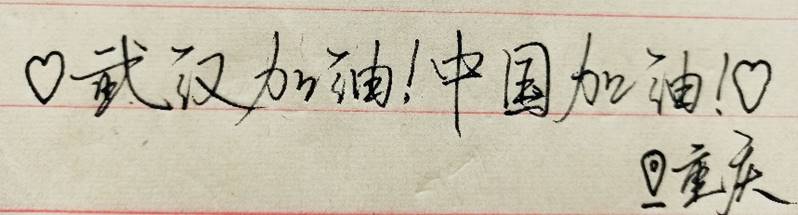 ♡武汉加油!中国加油!♡
重庆